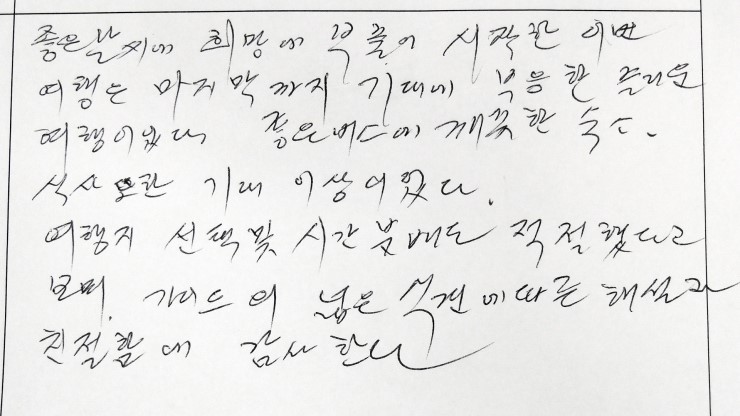 좋은날씨에 희망에 부풀어 시작한 이번
여행은 마지막까지 기대에 부응한 즐거운
여행이었다 좋은버스에 깨끗한 숙소.
식사 또한 기대 이상이었다.
여행지 선택및 시간 분배도 적절했다고
보며. 가이드의 넓은 식견에따른 해설과
친절함에 감사한다